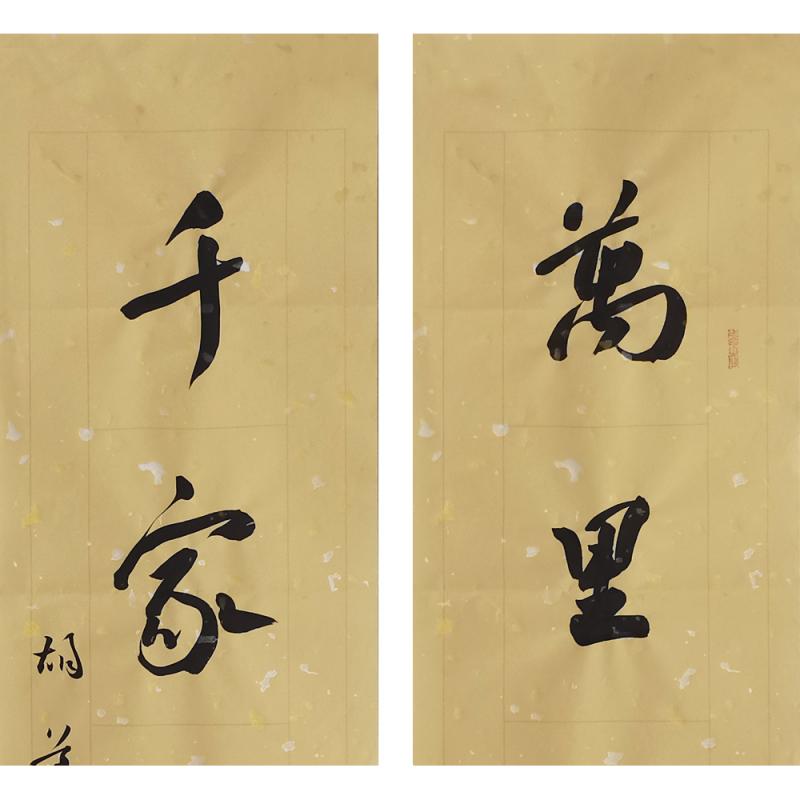 萬里
千家
胡